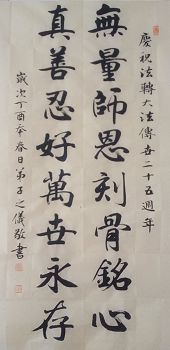 慶祝法輪大法傳世二十五週年
無量師恩刻骨銘心
真善忍好萬世永存
歲次丁酉春日弟子之儀敬書